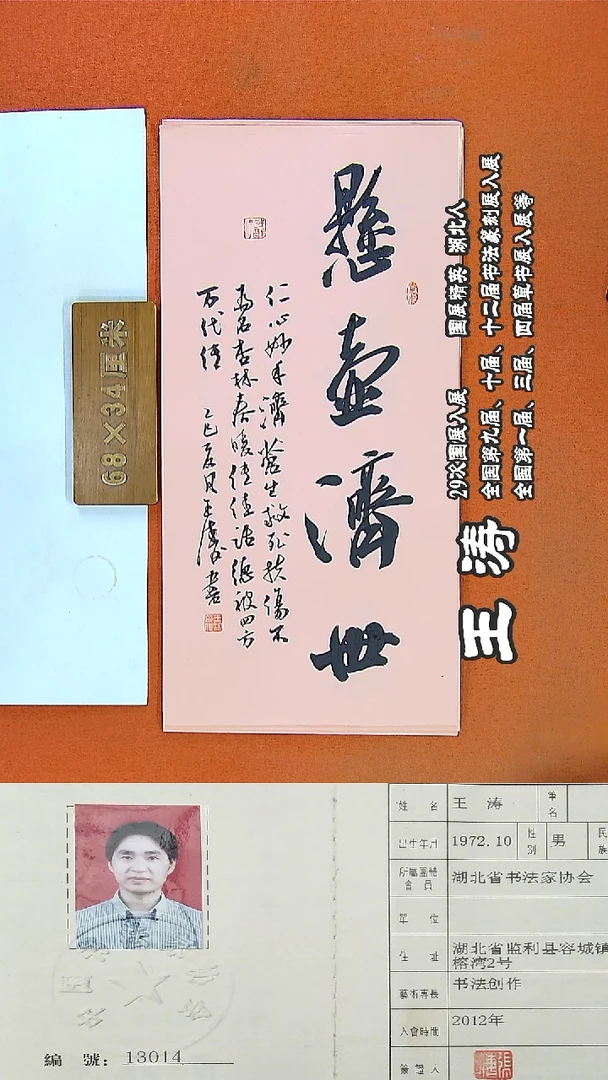 懸壺濟世
仁心妙手濟蒼生救死扶傷不
為名杏林春暖佳佳話德被四方
万代傳
乙巳夏月王濤書
68×34厘米
29次国展入展 国展精英 湖北人
全国第九届、十届、十二届书法篆刻展入展
全国第一届、三届、四届草书展入展等
王涛
編 號: 13014
姓 名 王 涛 筆名
出生年月 1972.10 性别 男 民族
所屬團體會員 湖北省书法家协会
單 位
住 址 湖北省监利县容城镇
榕湾2号
藝術專長 书法创作
入會時間 2012年
簽證人